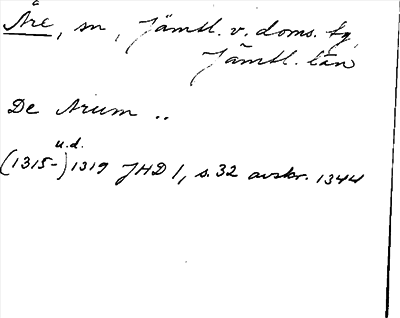 Åre, sn, Jämtl. v. doms. tg
Jämtl. län
De Arum ..
u.d.
(1315-) 1319 JHD 1, s. 32 avskr. 1344